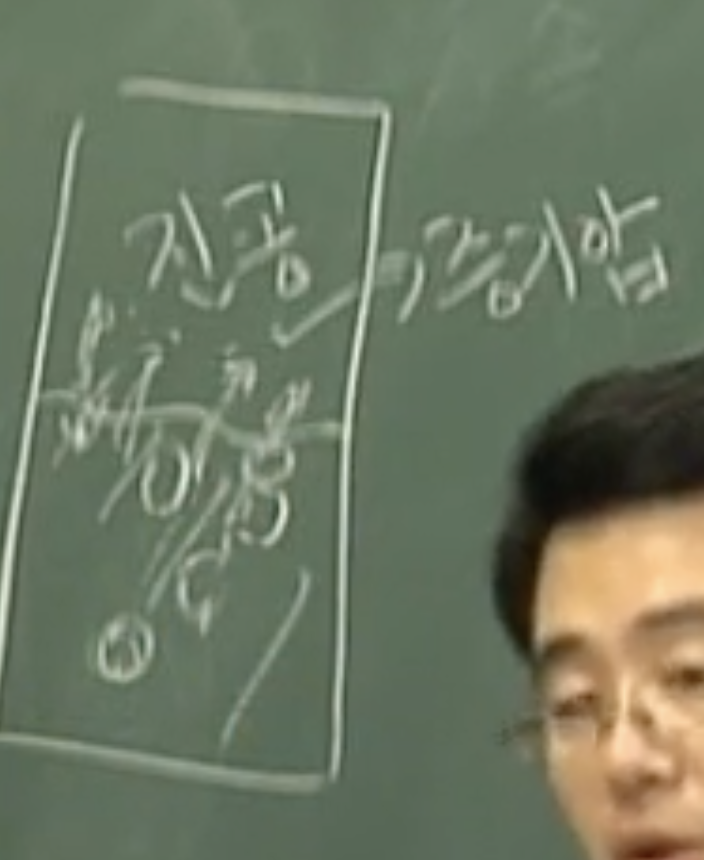 진공
증기압